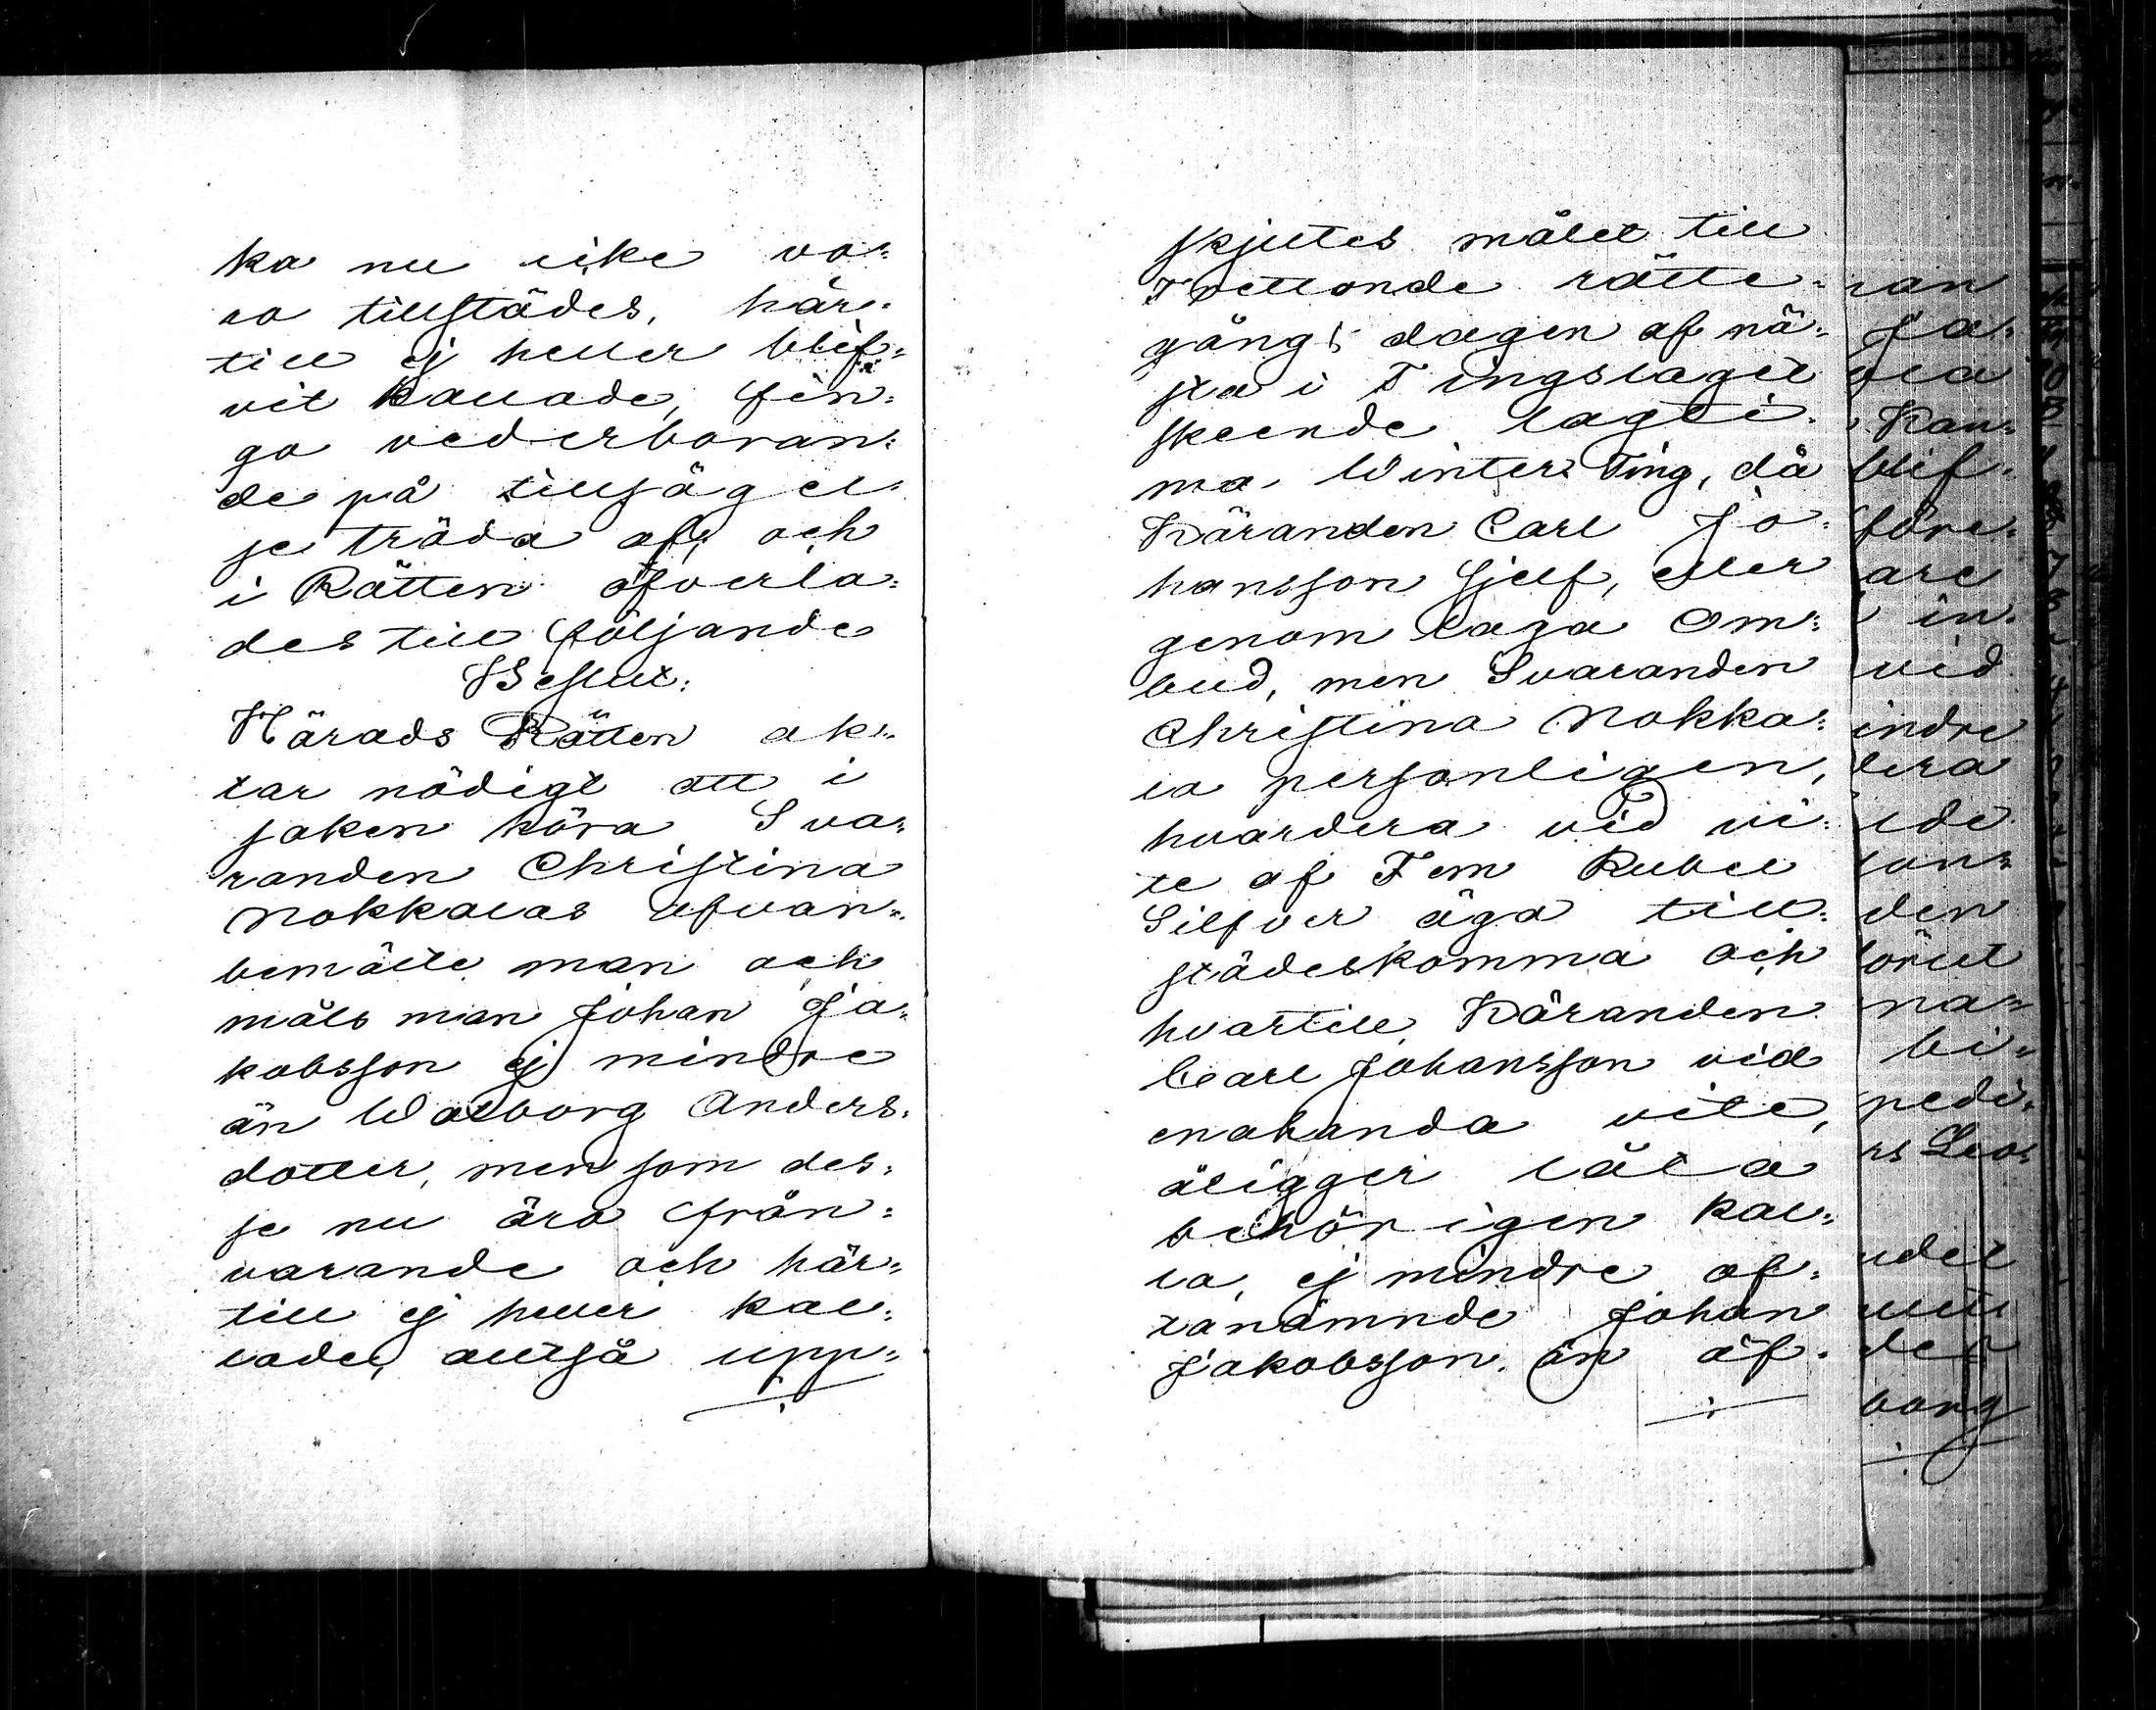 ka nu icke va=
ra tillstädes, här=
till ej heller blif=
vit kallade, fin=
go vederboran=
de på tillsägel=
se träda af, och
i Rätten öfverla=
des till följande
Beslut:
Härads Rätten ak=
tar nödigt att i
saken höra Sva=
randen Christina
Nokkalas ofvan=
bemälte man och
målsman Johan Ja=
kobsson ej mindre
än Walborg Anders=
dotter, men som des=
se nu äro från=
varande och här=
till ej heller kal=
lade, alltså upp=
skjutes målet till
Trettonde rätte=
gångs dagen af nä=
sta i Tingslaget
skeende lagti=
ma Winter Ting, då
Käranden Carl Jo=
hansson sjelf, eller
genom laga Om=
bud, men Svaranden
Christina Nokka=
la personligen,
hvardera vid vi=
te af Fem Rubel
Silfver äga till=
städeskomma och
hvartill Käranden
Carl Johansson vid
enahanda vite,
åligger låta
behörigen kal=
la, ej mindre of=
tanämnde Johan
Jakobsson, än äf=
ran
Ja=
gla
Kan=
blif=
före=
are
in=
vid
indre
lera
lde
sons
den
örut
na=
bi=
pedi=
rs Leo=
udet
det
borg